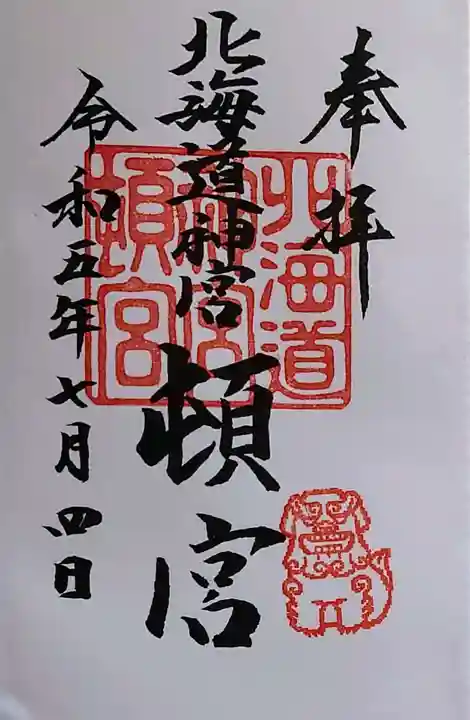 奉拝
北海道神宮
頓宮
令和五年七月四日
北海道
神宮
頓宮